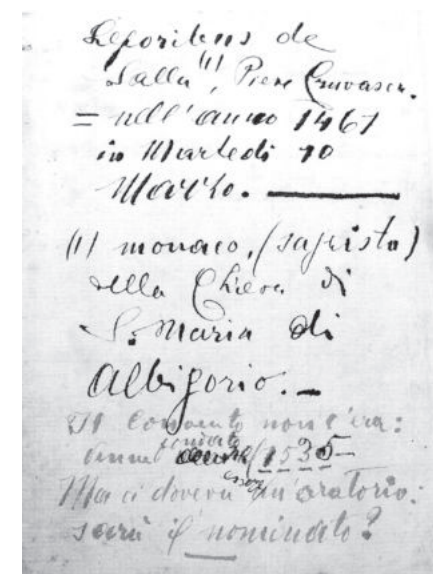 Leporibus de
Salla (1), Piero
= nell'anno 1461
in Martedì 10
Marzo. —
(1) monaco, (sagrista)
della Chiesa di
S. Maria di
Albigorio. —
Il Convento non c'era:
venne fondato (1535—
Ma ci doveva esser un oratorio:
sarà il nominato?